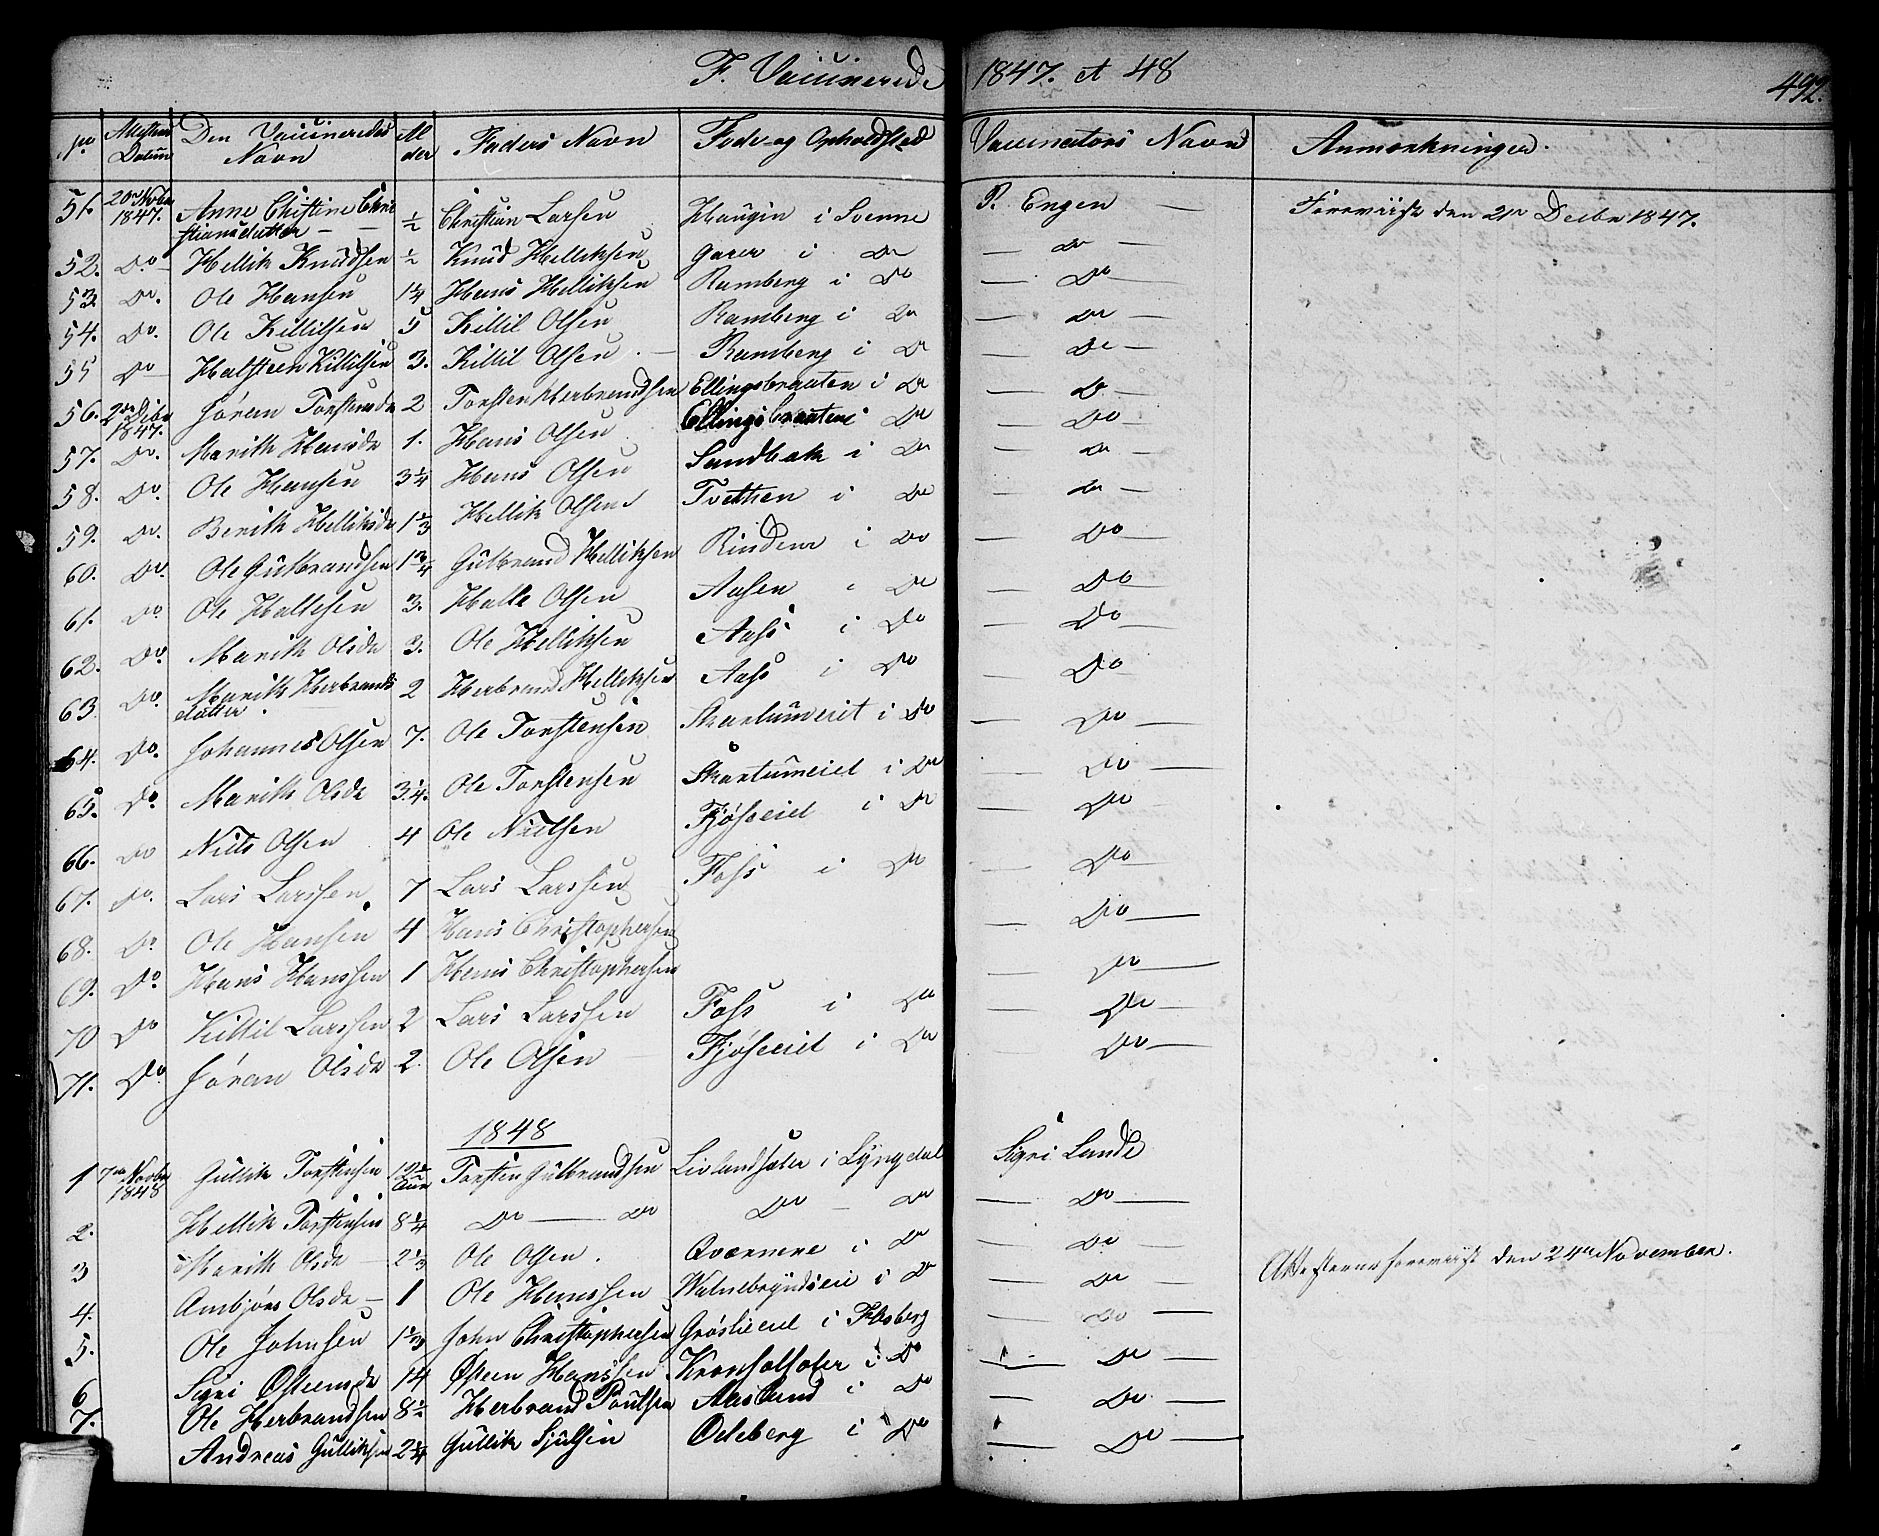 F. Vaccinerede 1847. et 48
492.
No Attestens Datum Den Vaccineredes Navn Alder Faders Navn Føde-og Opholdsted Vaccinators Navn Anmærkninger.
51. 20de Novbr 1847. Anne Christine Christiansdatter — ½ Christian Larsen Haugen i Svenne P. Engen — Foreviist den 2den Decbr 1847.
52. Do — Hellik Knudsen ½ Knud Helliksen garer i Do — Do —
53. Do. Ole Hansen 1¼ Hans Helliksen Ramberg i Do — Do —
54. Do. Ole Killilsen 5 Killil Olsen Ramberg i Do — Do —
55 Do — Halsteen Killilsen 3. Killil Olsen — Ramberg i Do — Do —
56. 2den Decbr 1847. Jøran Torstensdr 2 Torsten Herbrandsen Ellingsbraaten i Do — Do —
57. Do. Marith Hansdr 1. Hans Olsen Ellingsbraaten i Do — Do —
58. Do. Ole Hansen 3¼ Hans Olsen Sandbak i Do — Do —
59. Do. Berith Helliksdr 1⅓ Hellik Olsen Tvethen i Do — Do —
60. Do. Ole Gulbrandsen 1¾ Gulbrand Helliksen Rindene i Do — Do —
61. Do Ole Hallesen 3. Halle Olsen Aasen i Do — Do —
62. Do. Marith Olsdr 3. Ole Helliksen Aass i Do — Do —
63 Do. Marith Herbrandsdatter 2 Herbrand Helliksen Aass i Do — Do —
64. Do. Johannes Olsen 7. Ole Torstensen Skartumeiet i Do — Do —
65. Do. Marith Olsdr 3¼. Ole Torstensen Skartumeiet i Do — Do —
66. Do Niels Olsen 4 Ole Nielsen Fjøseeiet i Do — Do —
67. Do. Lars Larssen 7 Lars Larssen Foss i Do — Do —
68. Do Ole Hansen 4 Hans Christophersen — Do —
69. Do. Hans Hanssen 1 Hans Christophersen — Do —
70 Do Killil Larssen 2 Lars Larssen Foss i Do — Do —
71. Do. Jøran Olsdr 2. Ole Olsen — Fjøseeiet i Do — Do —
1848
1 7de Novbr 1848 Gullik Torstensen Torsten Gulbrandsen Livlandsæter i Lyngdal Sigri Lande
2. Hellik Torstensen 8¼ Do — Do Do — Do — Do —
3 Marith Olsdr — 2⅓ Ole Olsen. Qværnene i Do — Do — Attesterne foreviist den 24de November.
4. Ambjør Olsdr — 1 Ole Hanssen i Do — Do —
5. Ole Johnsen John Christophersen Grøslieeiet i Flesberg — Do —
6 Sigri Østensdr 14 Østen Hanssen i Do — Do —
7. Ole Herbrandsen 8½ Herbrand Poulsen Aasland i Do — Do —
Andreas Gulliksen 2¼ Gullik Sjulsen Odeberg i Do — Do —